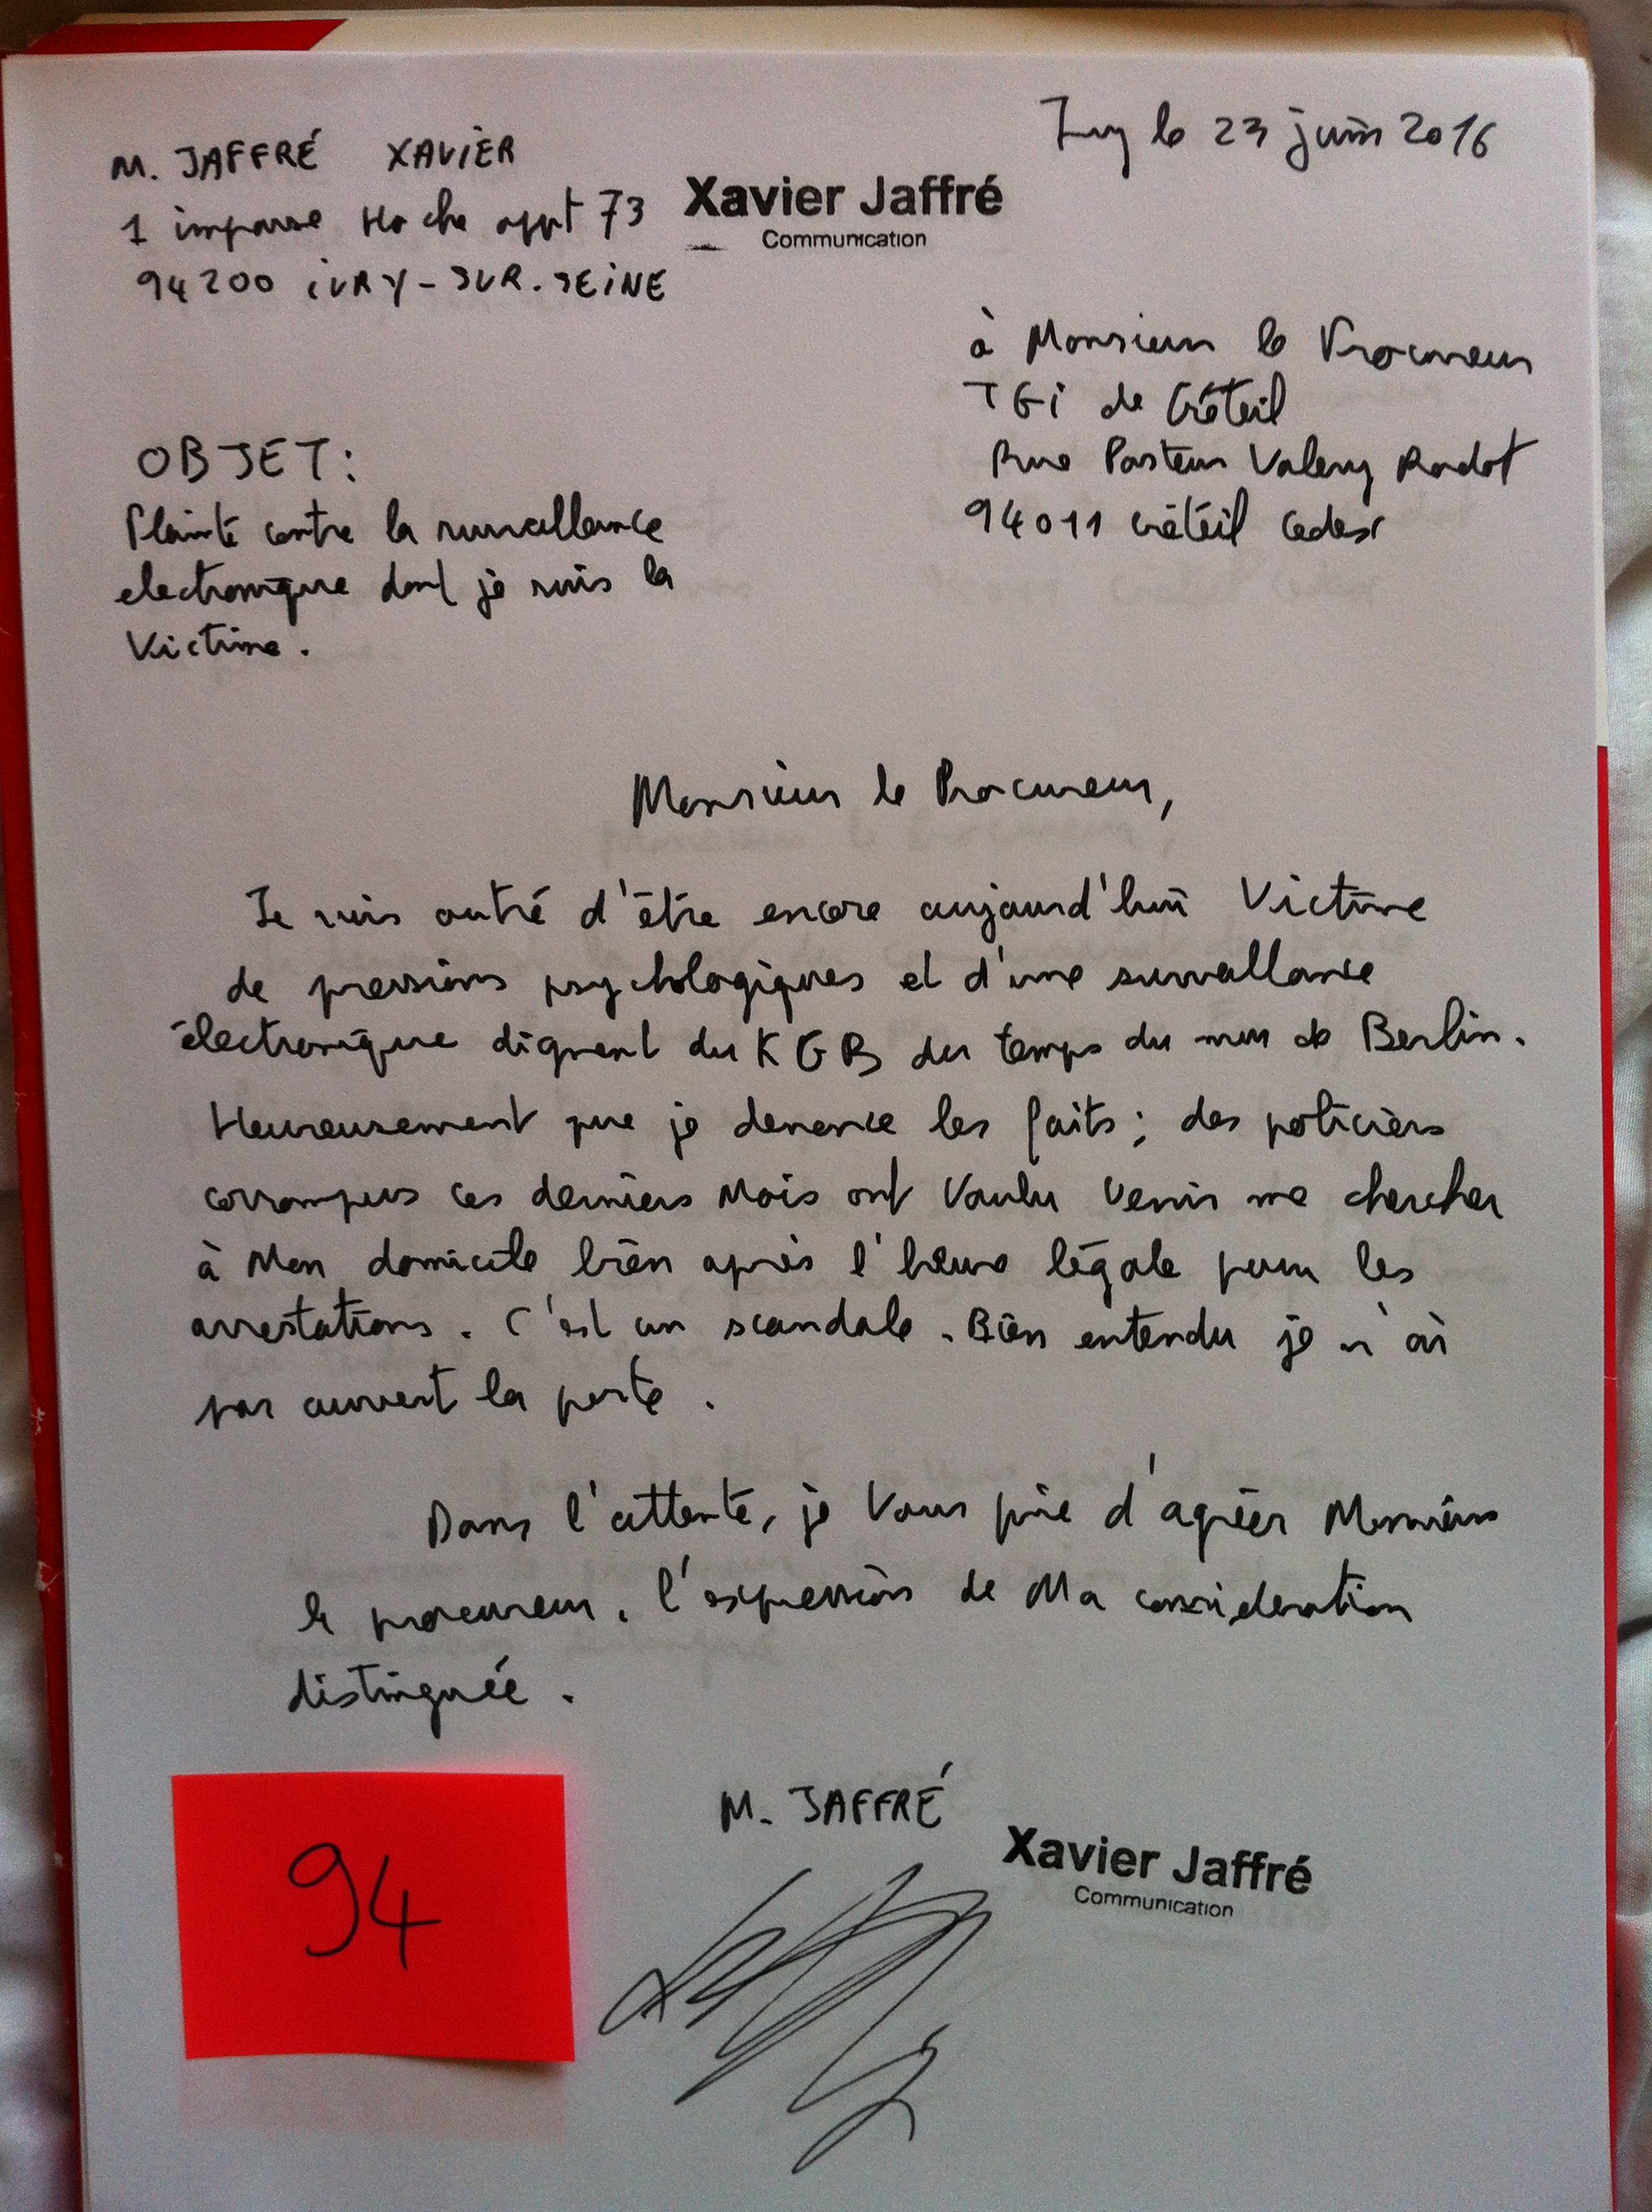 Ivry le 23 juin 2016
M. JAFFRÉ XAVIER
1 impasse Hoche appt 73
94200 IVRY-SUR-SEINE
Xavier Jaffré
Communication
à Monsieur le Procureur
TGI de Créteil
Rue Pasteur Valery Radot
94011 créteil cedex
OBJET:
Plainte contre la surveillance
electronique dont je suis la
Victime.
Monsieur le Procureur,
Je suis outré d'être encore aujourd'hui Victime
de pressions psychologiques et d'une surveillance
électronique dignent du KGB du temps du mur de Berlin.
Heureusement que je denonce les faits; des policiers
corrompus ces derniers Mois ont Voulu Venir me chercher
à Mon domicile bien après l'heure légale pour les
arrestations. C'est un scandale. Bien entendu je n'ai
pas ouvert la porte.
Dans l'attente, je Vous prie d'agréer Monsieur
le procureur, l'expression de Ma consideration
distinguée.
M. JAFFRÉ
Xavier Jaffré
Communication
94